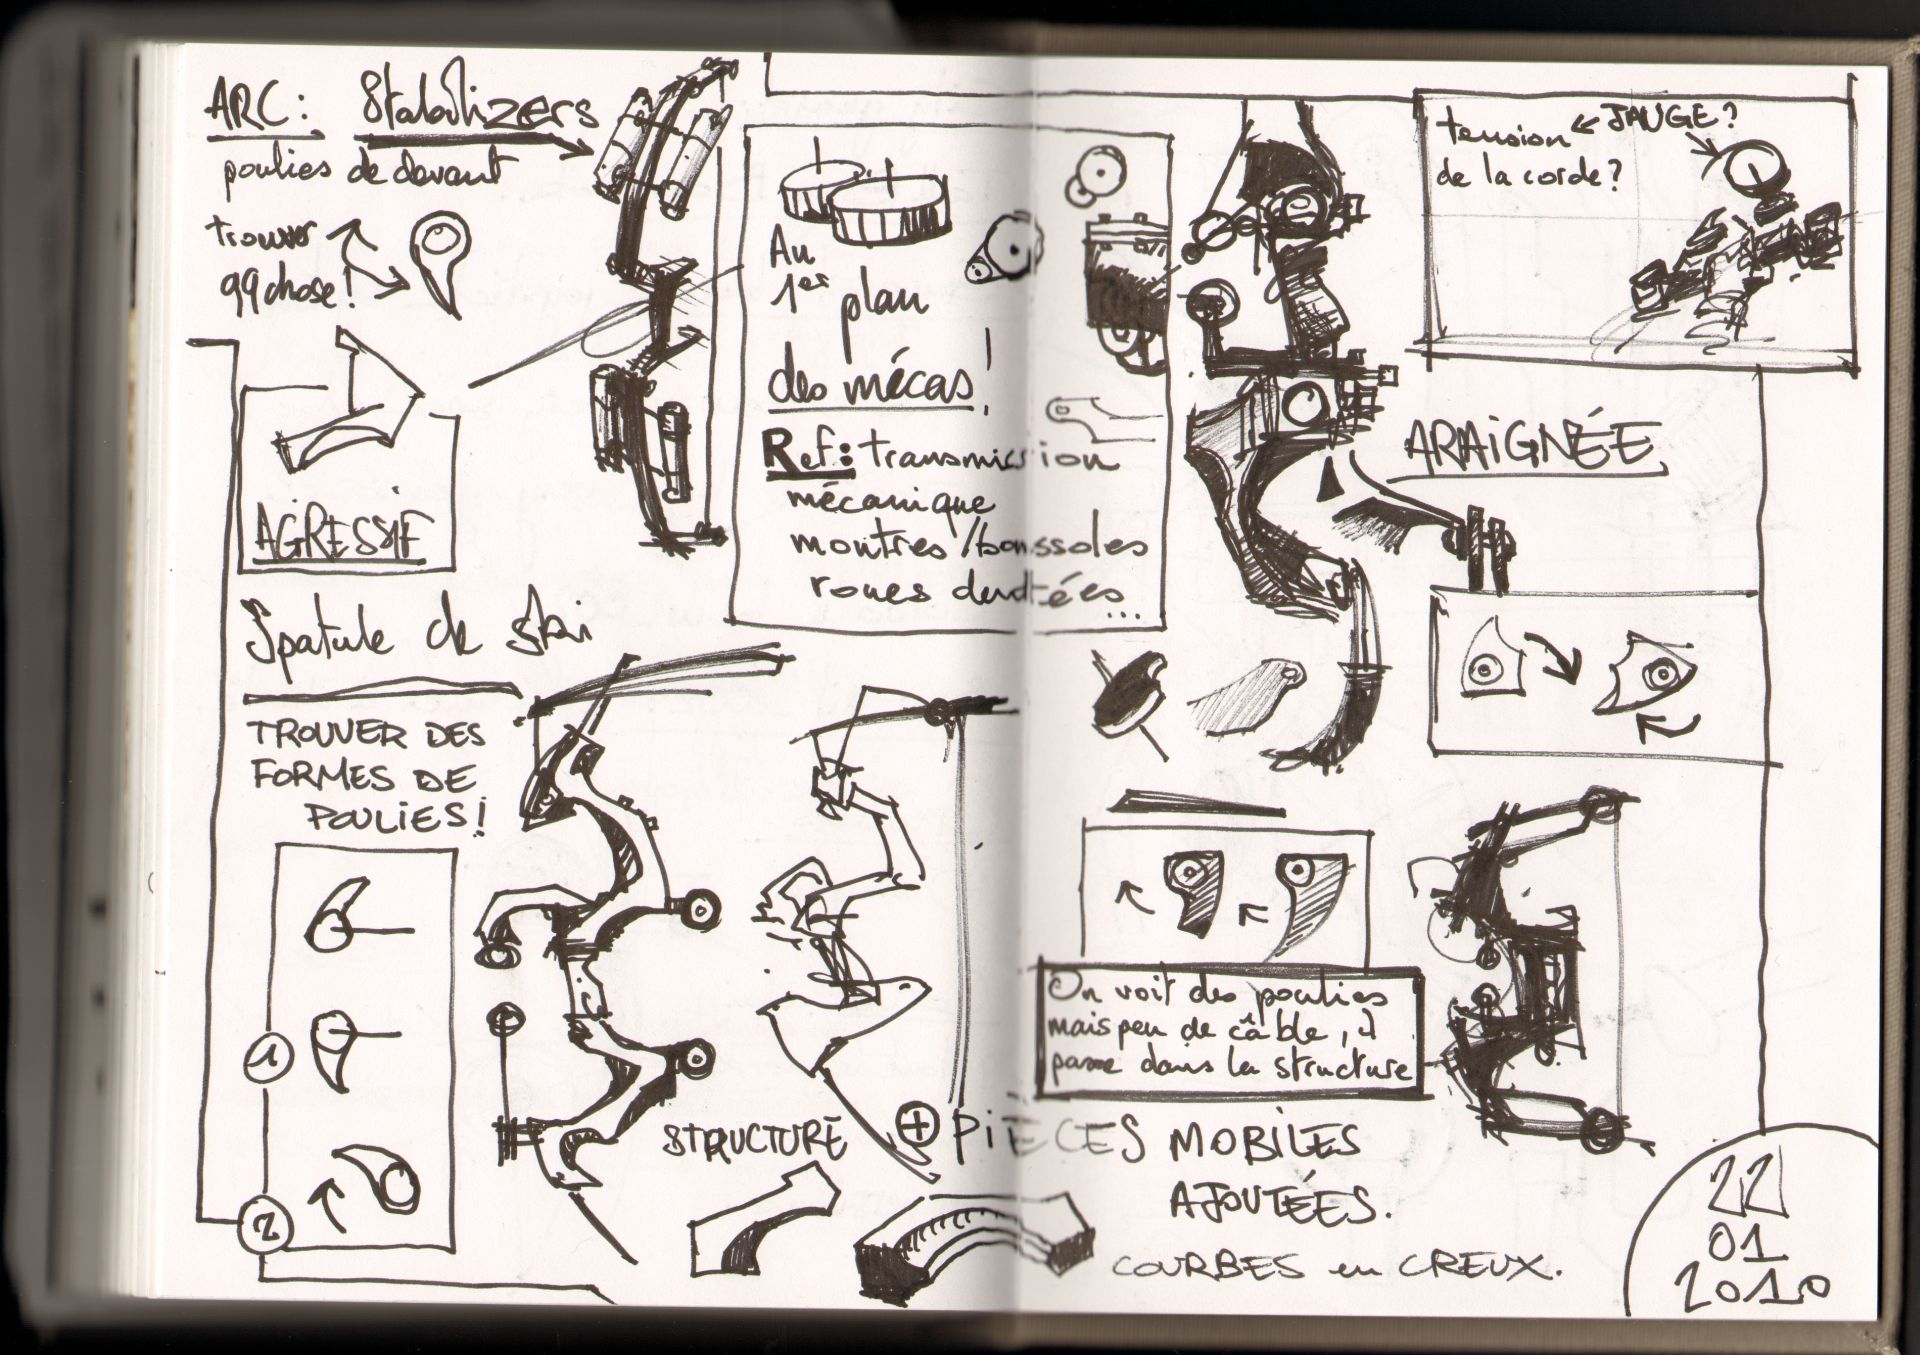 ARC: Stabilizers
poulies de devant
trouver
qqchose!
AGRESSIF
Spatule de ski
TROUVER DES
FORMES DE
POULIES!
1
2
Au
1er plan
des mécas!
Ref: transmission
mécanique
montres/boussoles
roues dentées...
tension ← JAUGE?
de la corde?
ARAIGNÉE
On voit des poulies
mais peu de câble, il
passe dans la structure
STRUCTURE + PIÈCES MOBILES
AJOUTÉES.
COURBES en CREUX.
22
01
2010